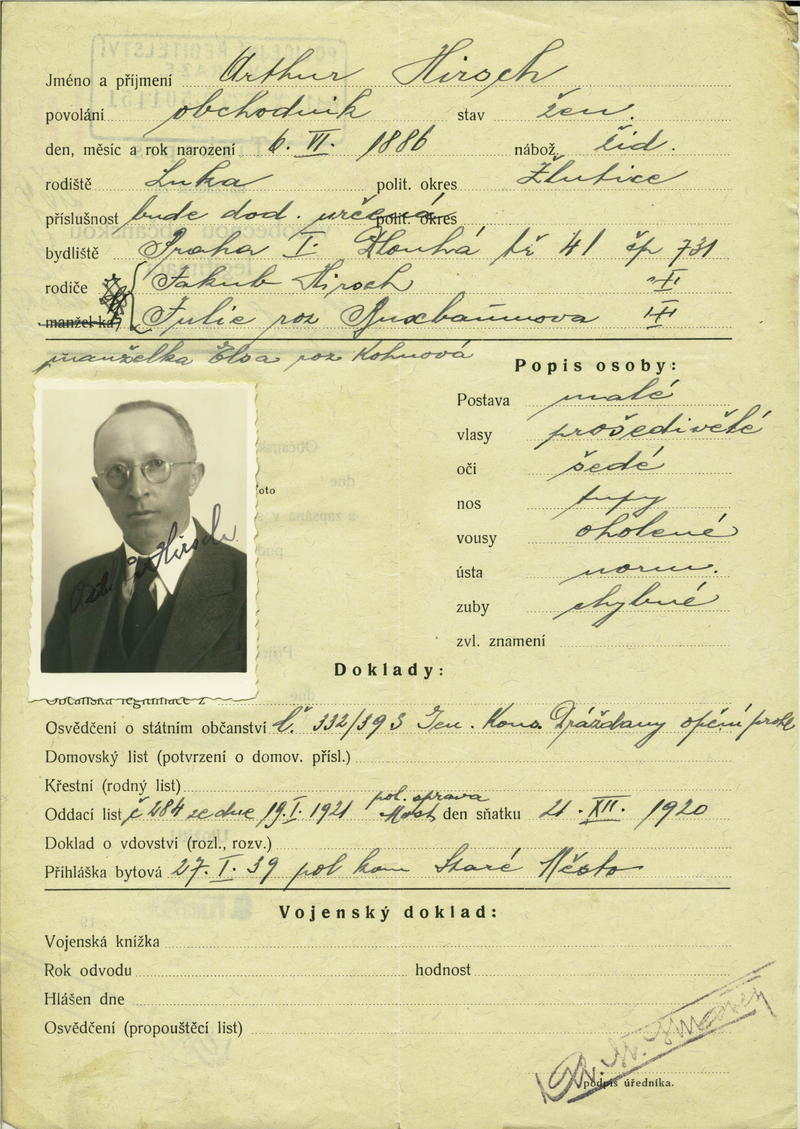 Jméno a příjmení Arthur Hirsch
povolání obchodník stav žen.
den, měsíc a rok narození 6. VI. 1886 nábož. žid.
rodiště Luka polit. okres Žlutice
příslušnost bude dod. určená polit. okres
bydliště Praha I. Dlouhá tř 41 čp 731
rodiče Jakub Hirsch
manžel-ka Julie roz Buxbaumova
manželka Elsa roz Kohnová
Popis osoby:
Postava malé
vlasy prošedivělé
oči šedé
foto
nos tupý
vousy oholené
ústa norm.
zuby chybné
zvl. znamení
Hirsch
Doklady:
Občanská legitimace z
Osvědčení o státním občanství č. 332/39 Gen. Konz. Drážďany opční
Domovský list (potvrzení o domov. přísl.)
Křestní (rodný list)
Oddací list č 284 ze dne 19.I.1921 pol. správa Most den sňatku 21. XII. 1920
Doklad o vdovství (rozl., rozv.)
Přihláška bytová 27.I.39 pol kom Staré Město
Vojenský doklad:
Vojenská knížka
Rok odvodu hodnost
Hlášen dne
Osvědčení (propouštěcí list)
podpis úředníka.